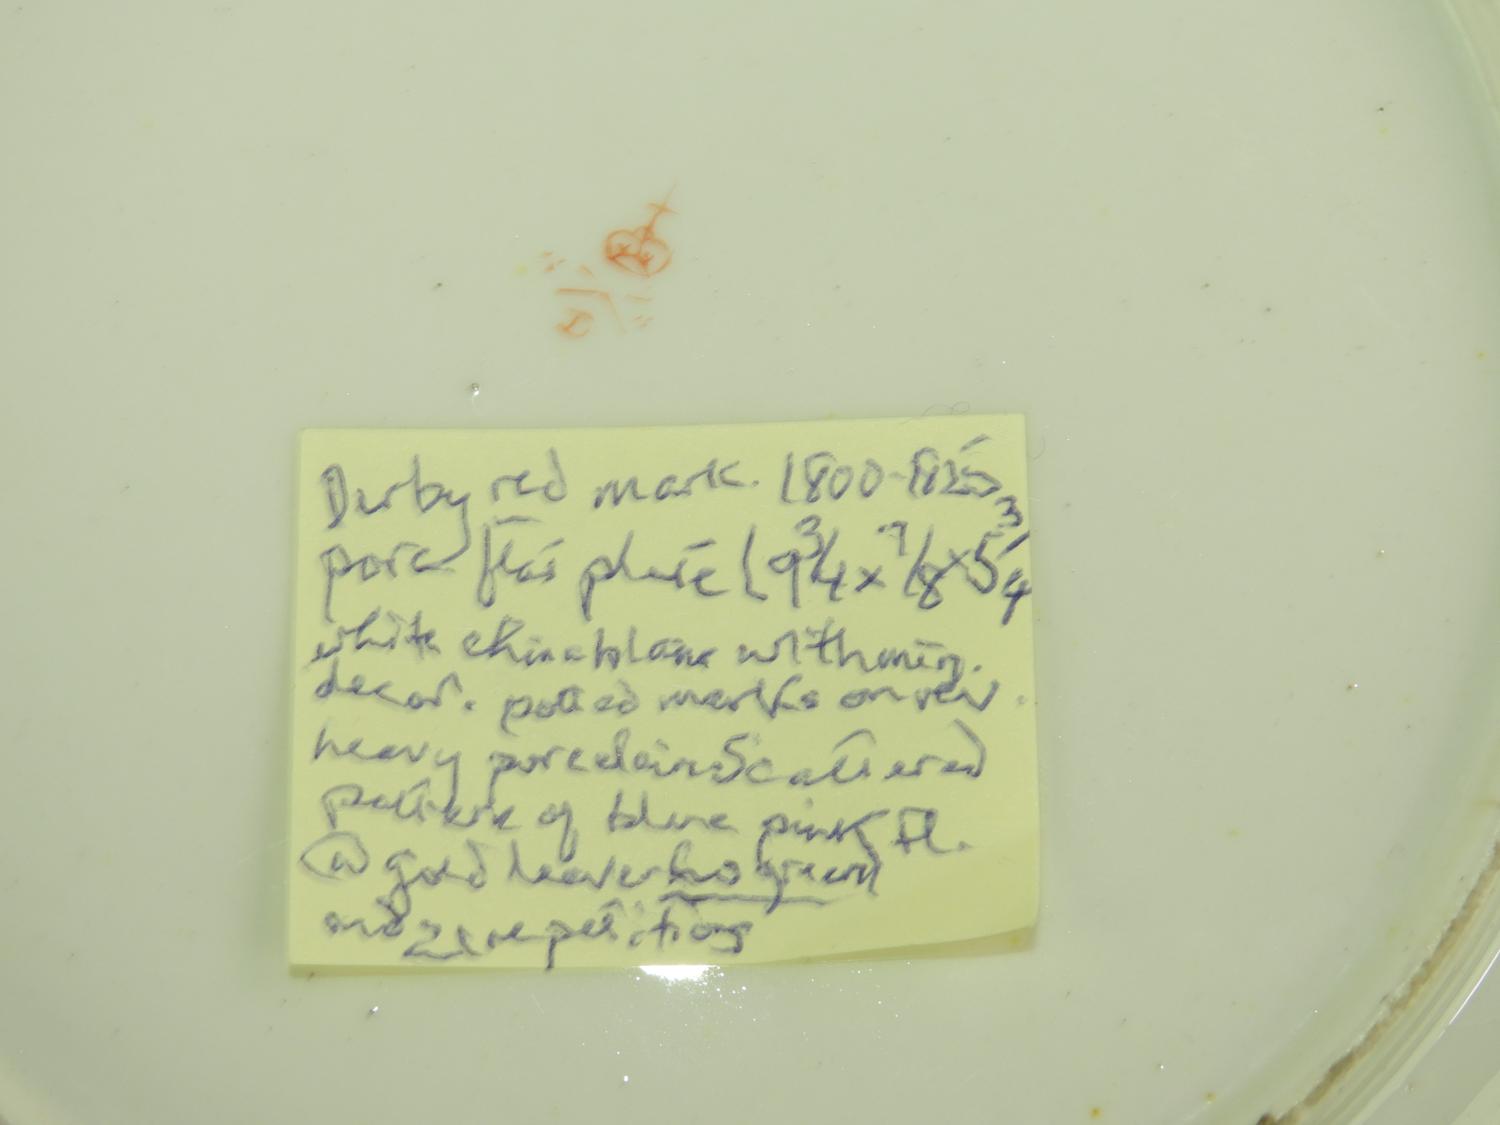 Derby red mark. 1800-1825
porc flat plate (9 3/4 x 7/8 x 5 3/4
white china blank with
decor. potted marks on rev.
heavy porcelain Scattered
pattern of blue pink fl.
gold leaves no green
and repetitions